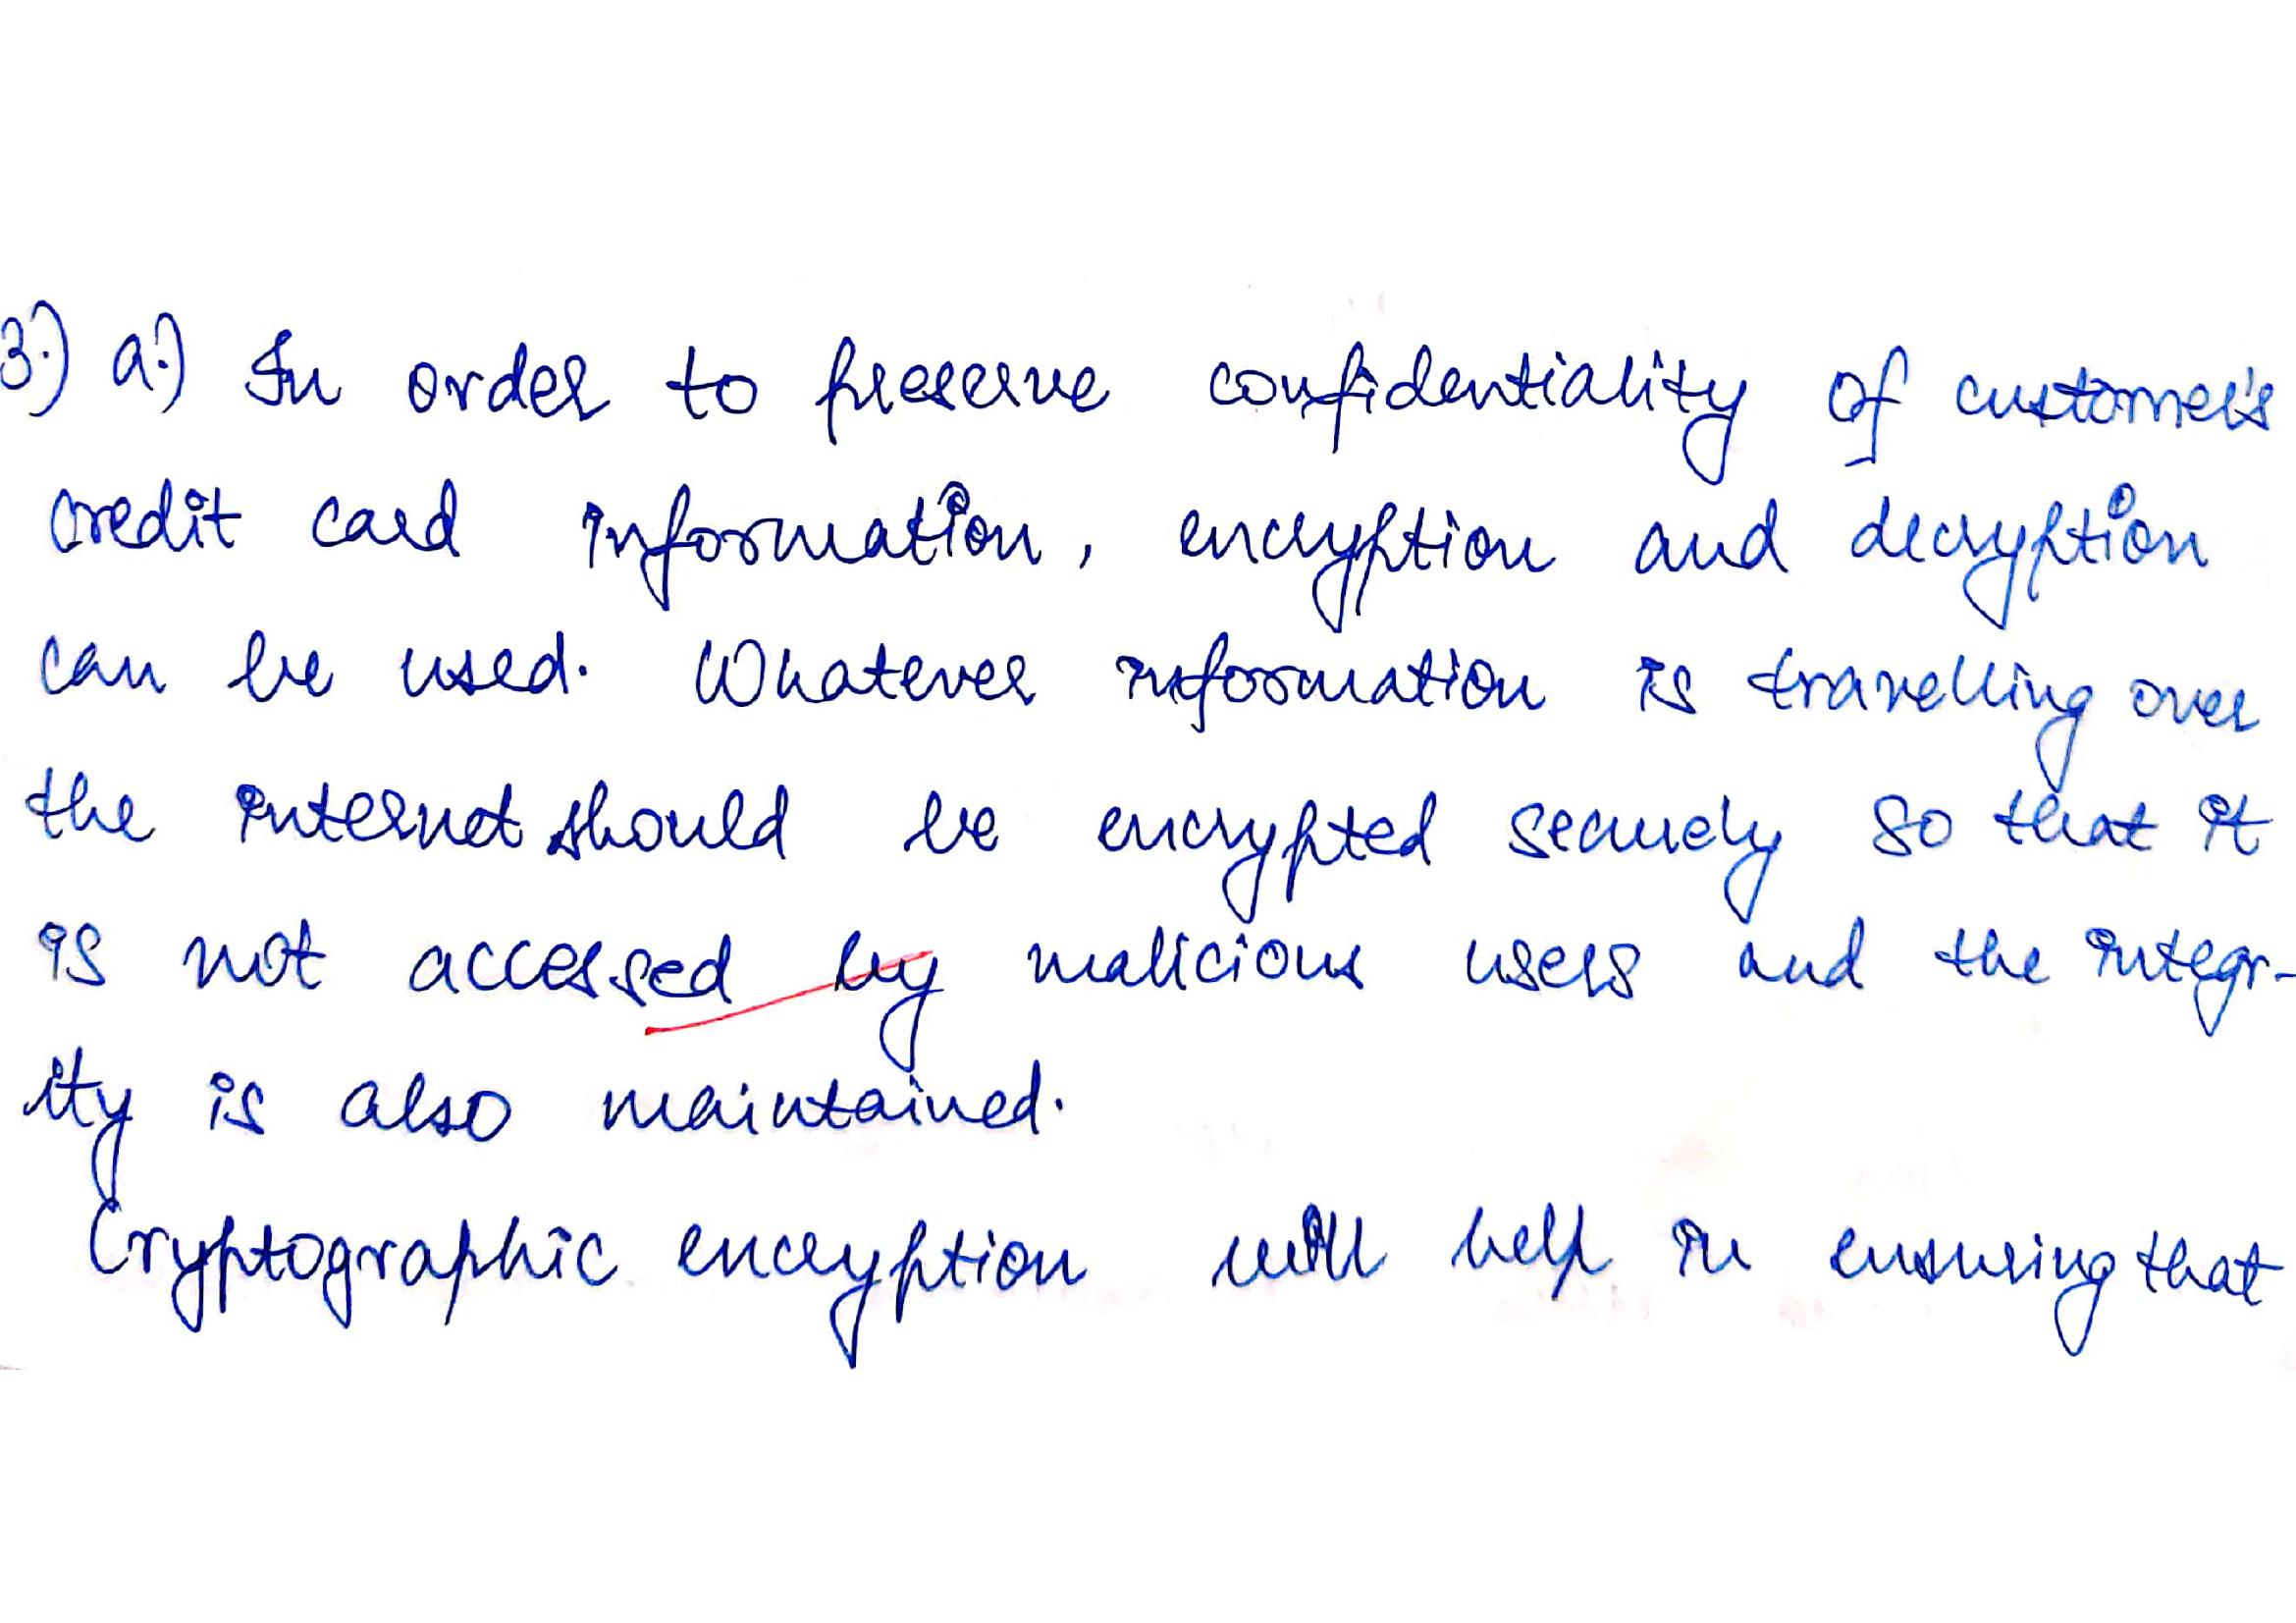 3.) a.) In order to preserve confidentiality of customer's
credit card information, encryption and decryption
can be used. Whatever information is travelling over
the internet should be encrypted securely so that it
is not accessed by malicious users and the integr-
ity is also maintained.
Cryptographic encryption will help in ensuring that